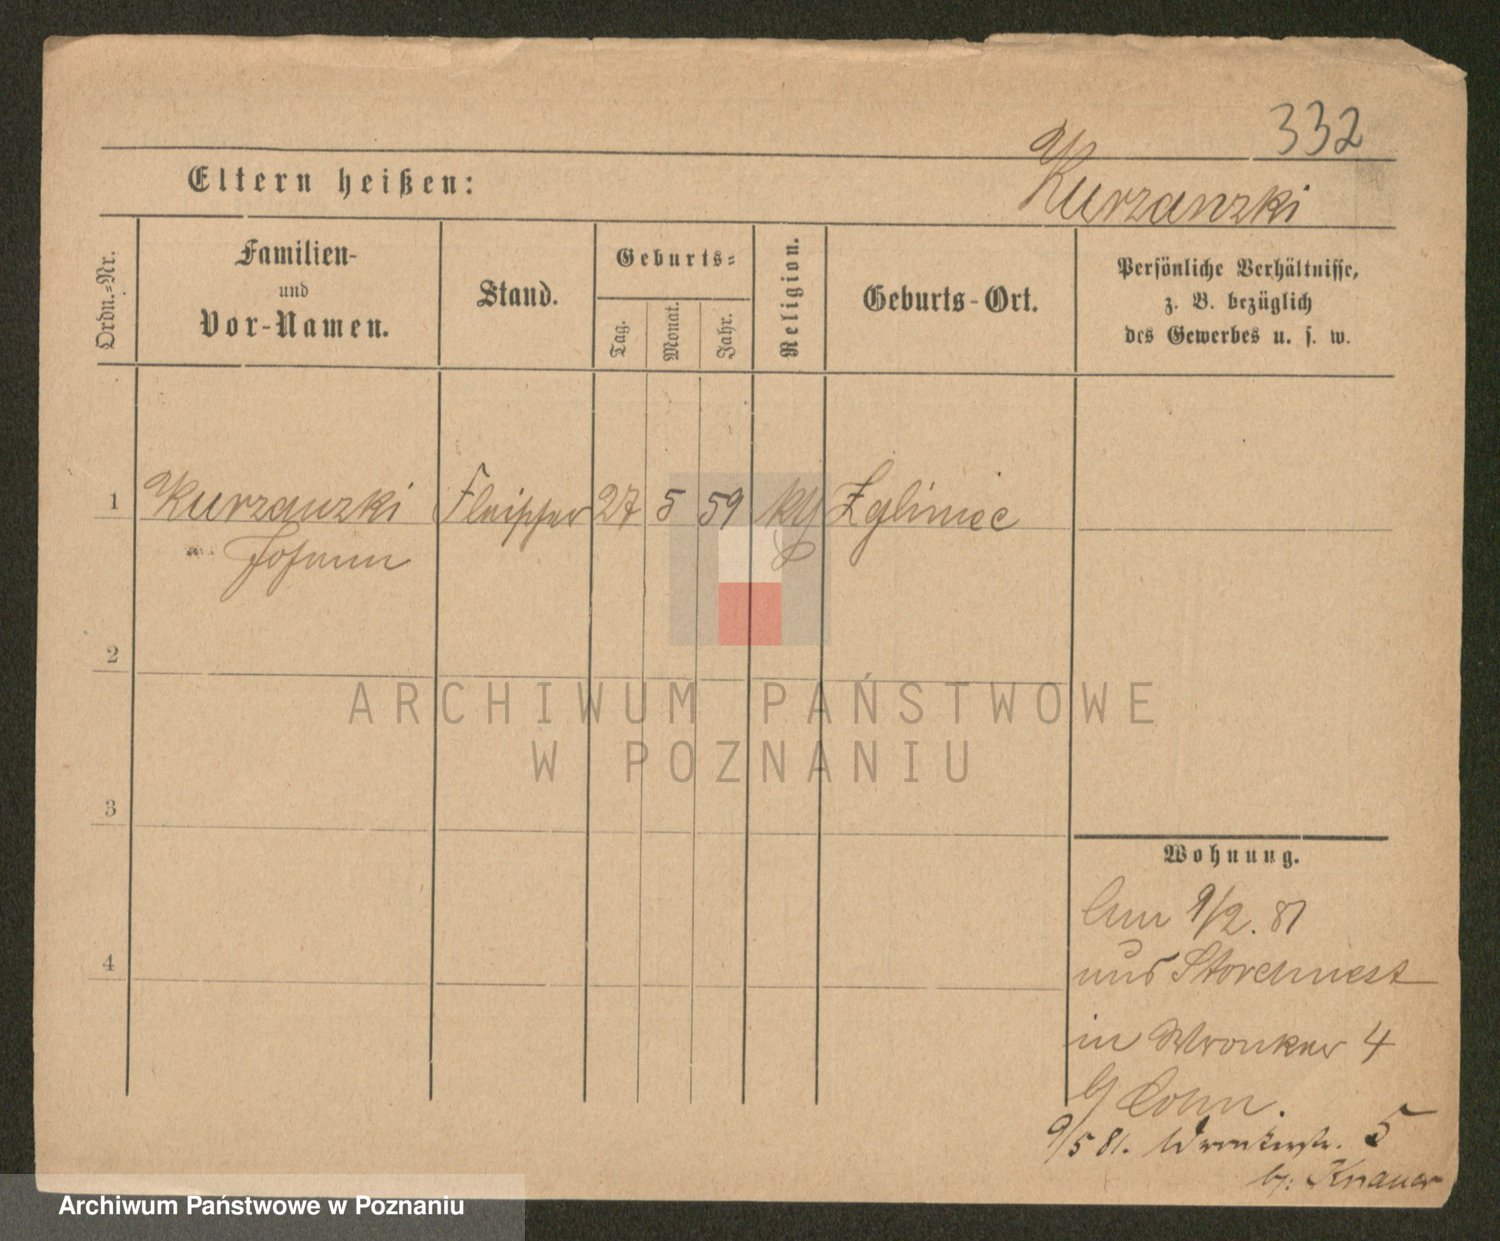 332
Eltern heißen:
Kurzanzki
Ordn.-Nr.
Familien-
und
Vor-Namen.
Stand.
Geburts-
Tag.
Monat.
Jahr.
Religion.
Geburts-Ort.
Persönliche Verhältnisse,
z. B. bezüglich
des Gewerbes u. s. w.
1
Kurzanzki
Johann
Fleischer
27
5
59
Zgliniec
2
ARCHIWUM PAŃSTWOWE
W POZNANIU
3
4
Wohnung.
Am 9/2. 81
aus Storchnest
in Wronker 4
b/ Cohn.
9/5 81. Wronkerstr. 5
b/: Knauer
Archiwum Państwowe w Poznaniu